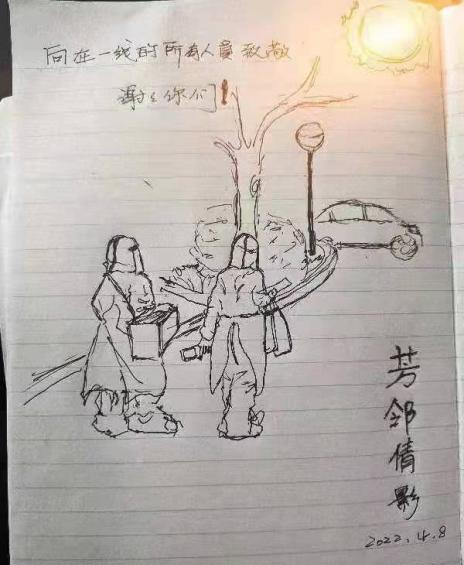 向在一线的所有人员致敬
谢谢你们!
芳邻倩影
2022.4.8